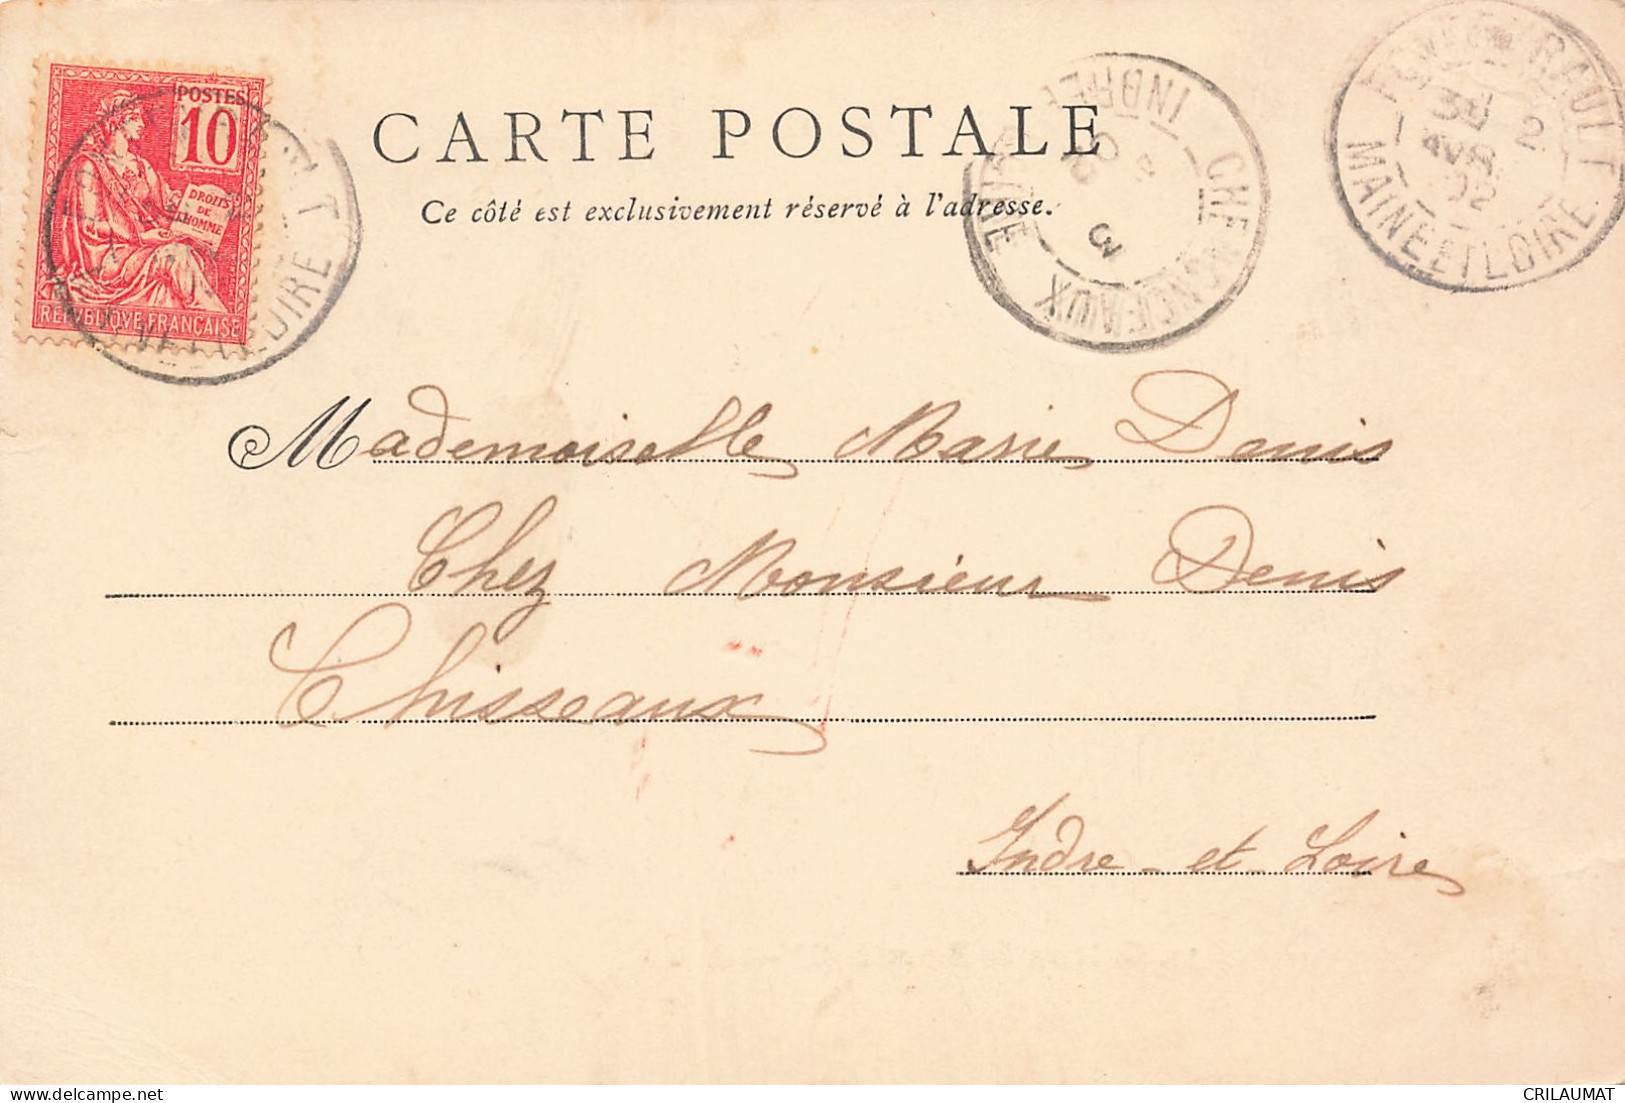 POSTES
10
DROITS
DE
L'HOMME
REPUBLIQUE FRANÇAISE
CARTE POSTALE
Ce côté est exclusivement réservé à l'adresse.
CHENONCEAUX
INDRE ET LOIRE
3
FONTEVRAULT
30 2
AVR
02
MAINE ET LOIRE
Mademoiselle Marie Denis
Chez Monsieur Denis
Chisseaux
Indre-et-Loire
CRILAUMAT